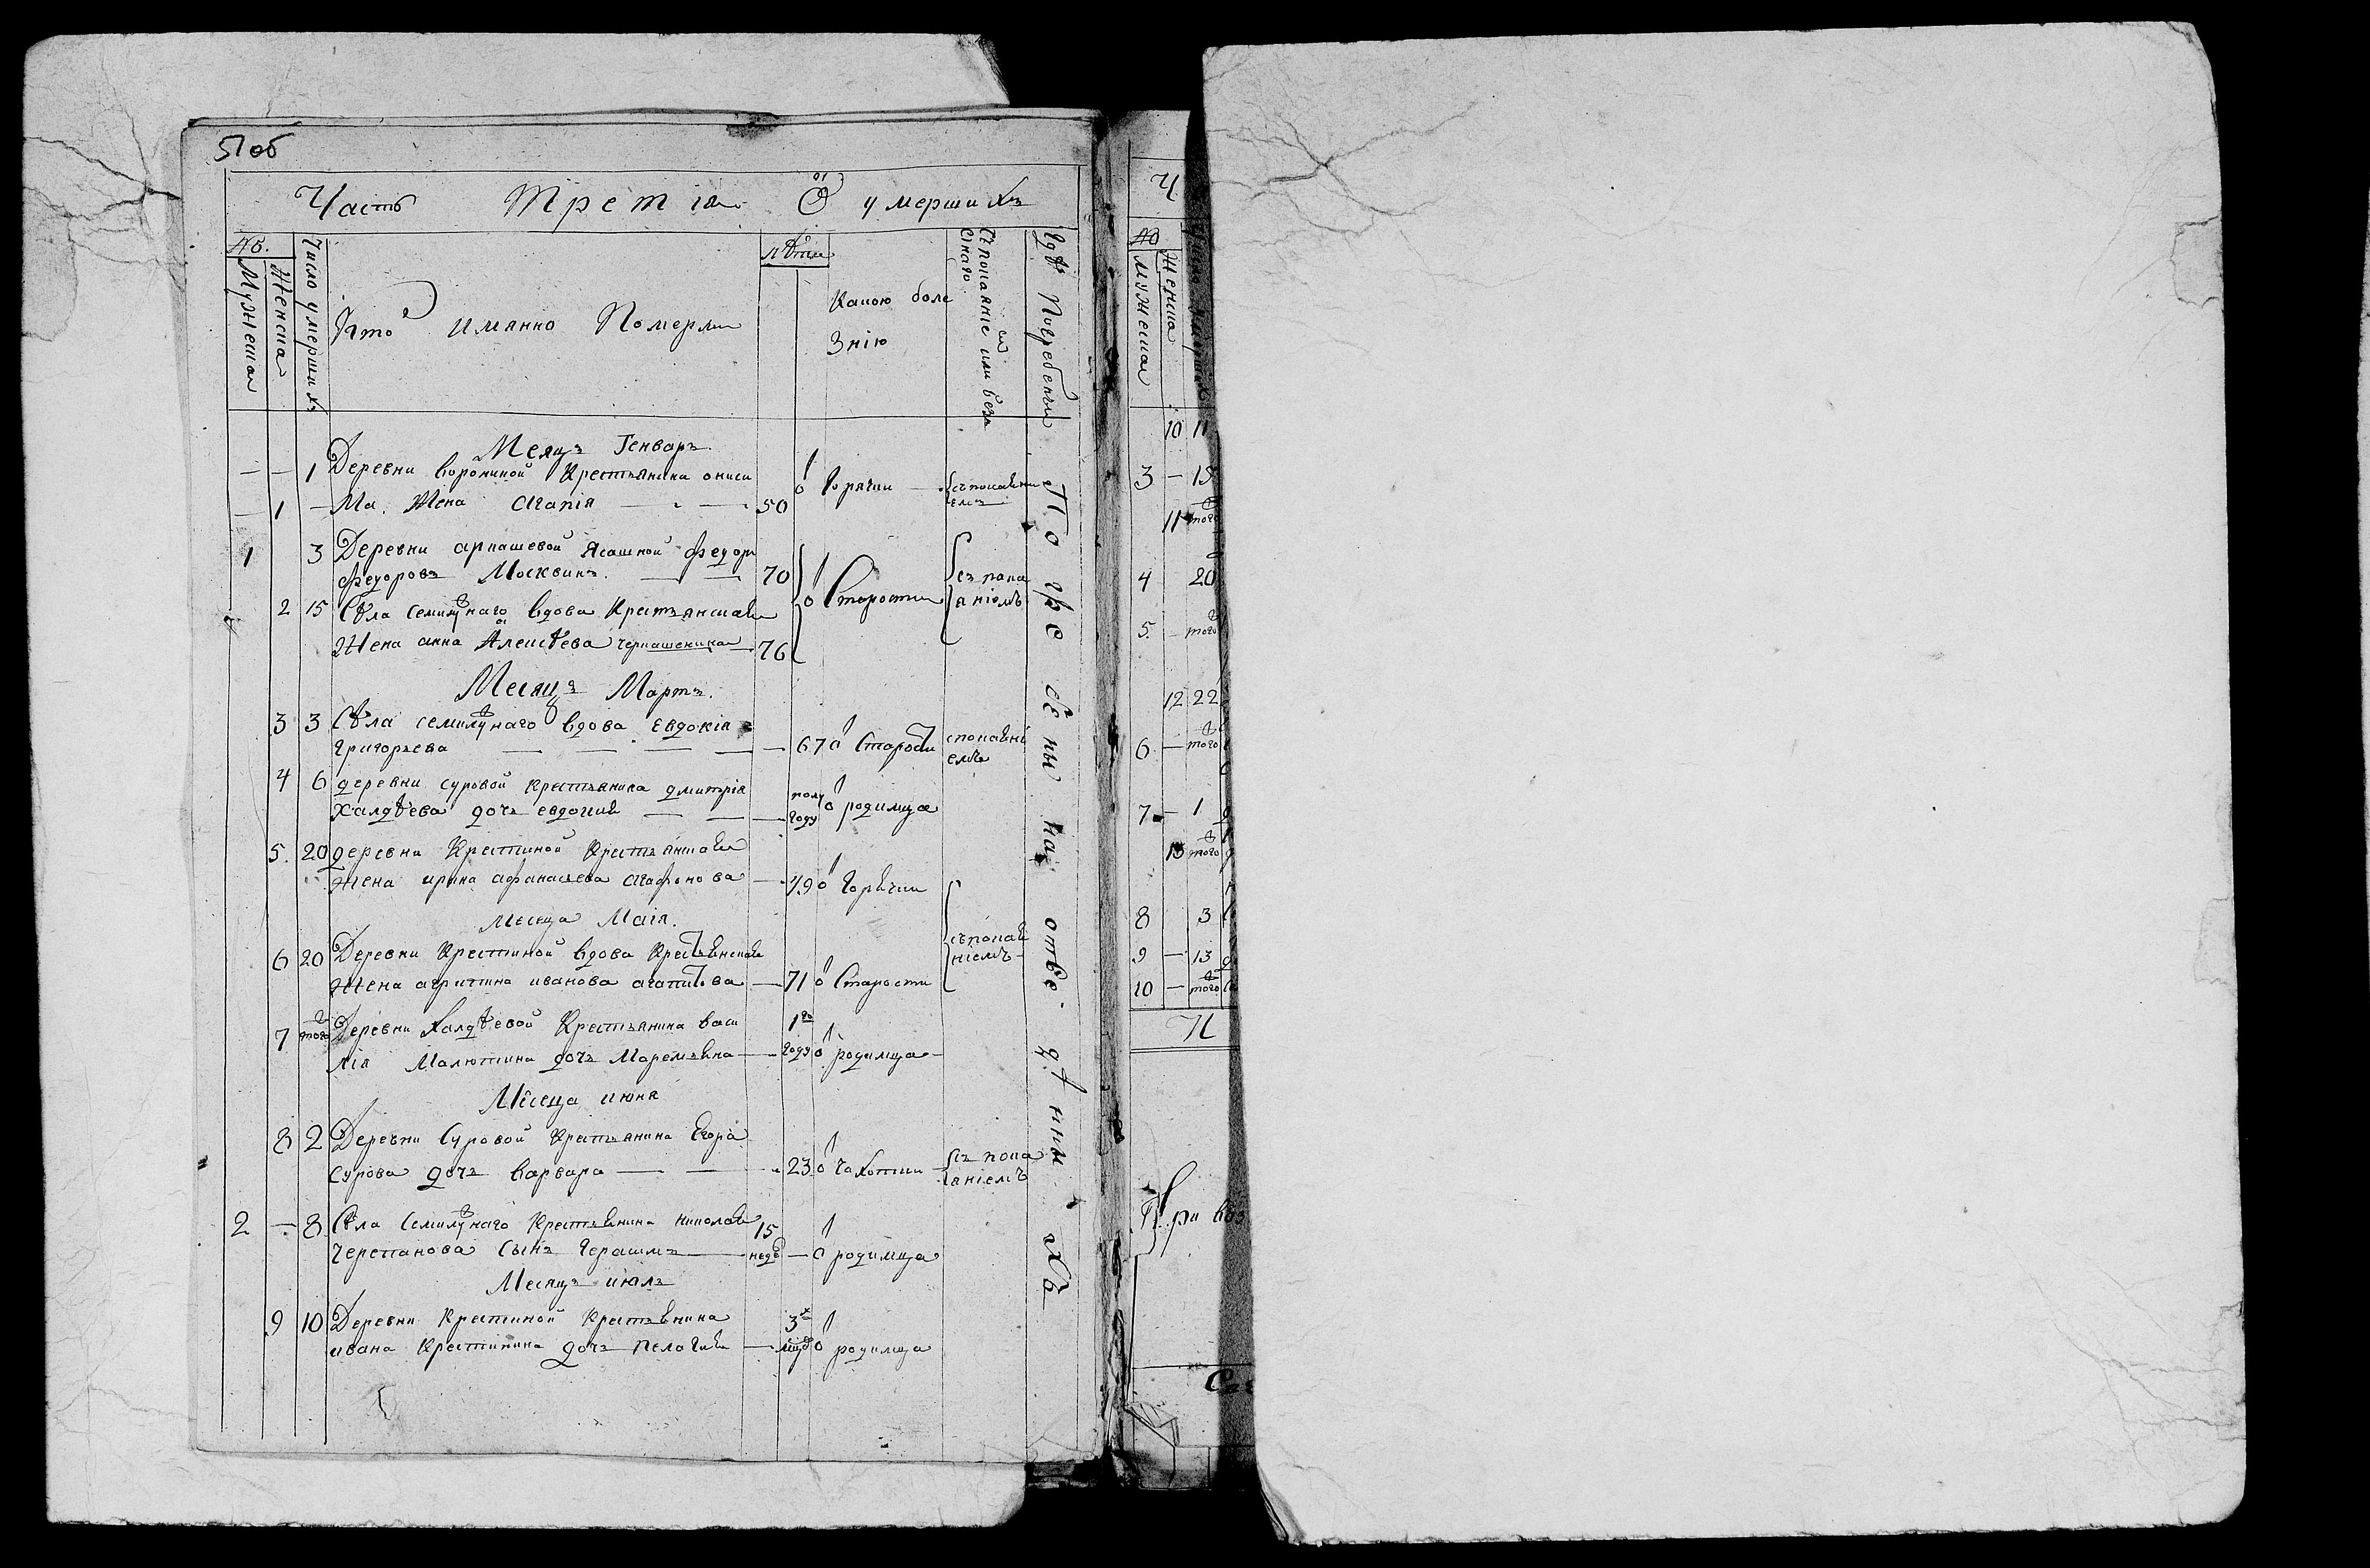 51 об
Часть Третіа Ѿ умершихъ
№.
Мужеска
Женска
Число умершихъ
Кто имянно Померли
лѣта
Какою боле
знію
Съ покаяніе или безъ
онаго
Гдѣ Погребены
Месяцъ Генваръ
— — 1 Деревни Ворониной Крестьянина Ониси
— 1 — Ма. Жена Агапія — 50 Ѿ Горячки — съ покаяни
емъ
1 3 Деревни арпашевой Ясашной Федоръ
Федоровъ Москвинъ. — — 70 Ѿ Старости съ пока
2 15 Сѣла Семилужнаго вдова Крестьянская
аніемъ
Жена анна Алексѣева черпашенина 76
Месяцъ Мартъ.
3 3 Сѣла семилужнаго вдова Евдокія
Григорьева — — — — 67 Ѿ Старости спокаяні
емъ
4 6 деревни суровой крестьянина дмитрія
Халдѣева дочь евдокия — — полу году Ѿ родимца
5. 20 деревни Крестиной Крестьянская
Жена ирина афанасьева агафонова — 49 Ѿ Горячки
Месеца Маія.
6 20 Деревни Крестиной вдова Крестьянская
съ покая
ніемъ
Жена агрипина иванова агапитова — 71 Ѿ Старости
7 того Деревни Халдѣевой Крестьянина васи
1го
лія Малютина дочь Маремьяна — году Ѿ родимца
Месеца июня
8 2 Деревни Суровой Крестьянина Егора
Сурова дочь Варвара — — 23 Ѿ Чахотки — съ пока
аніемъ
2 — 8 Сѣла Семилужнаго Крестьянина Николая
15
Черепанова Сынъ Герасимъ — недѣ — Ѿ родимца
Месяцъ июль
9 10 Деревни Крестиной Крестьянина
3х
ивана Крестинина дочь пелагия — мцъ Ѿ родимца
Погребены на отведѣнныхъ
Ч
№
Мужеска
Женска
10 11
3 — 18
11 того
4 20
5. — того
12 22
6 — того
7 — 1
13 того
8 3
9 — 13
10 — того
И
При